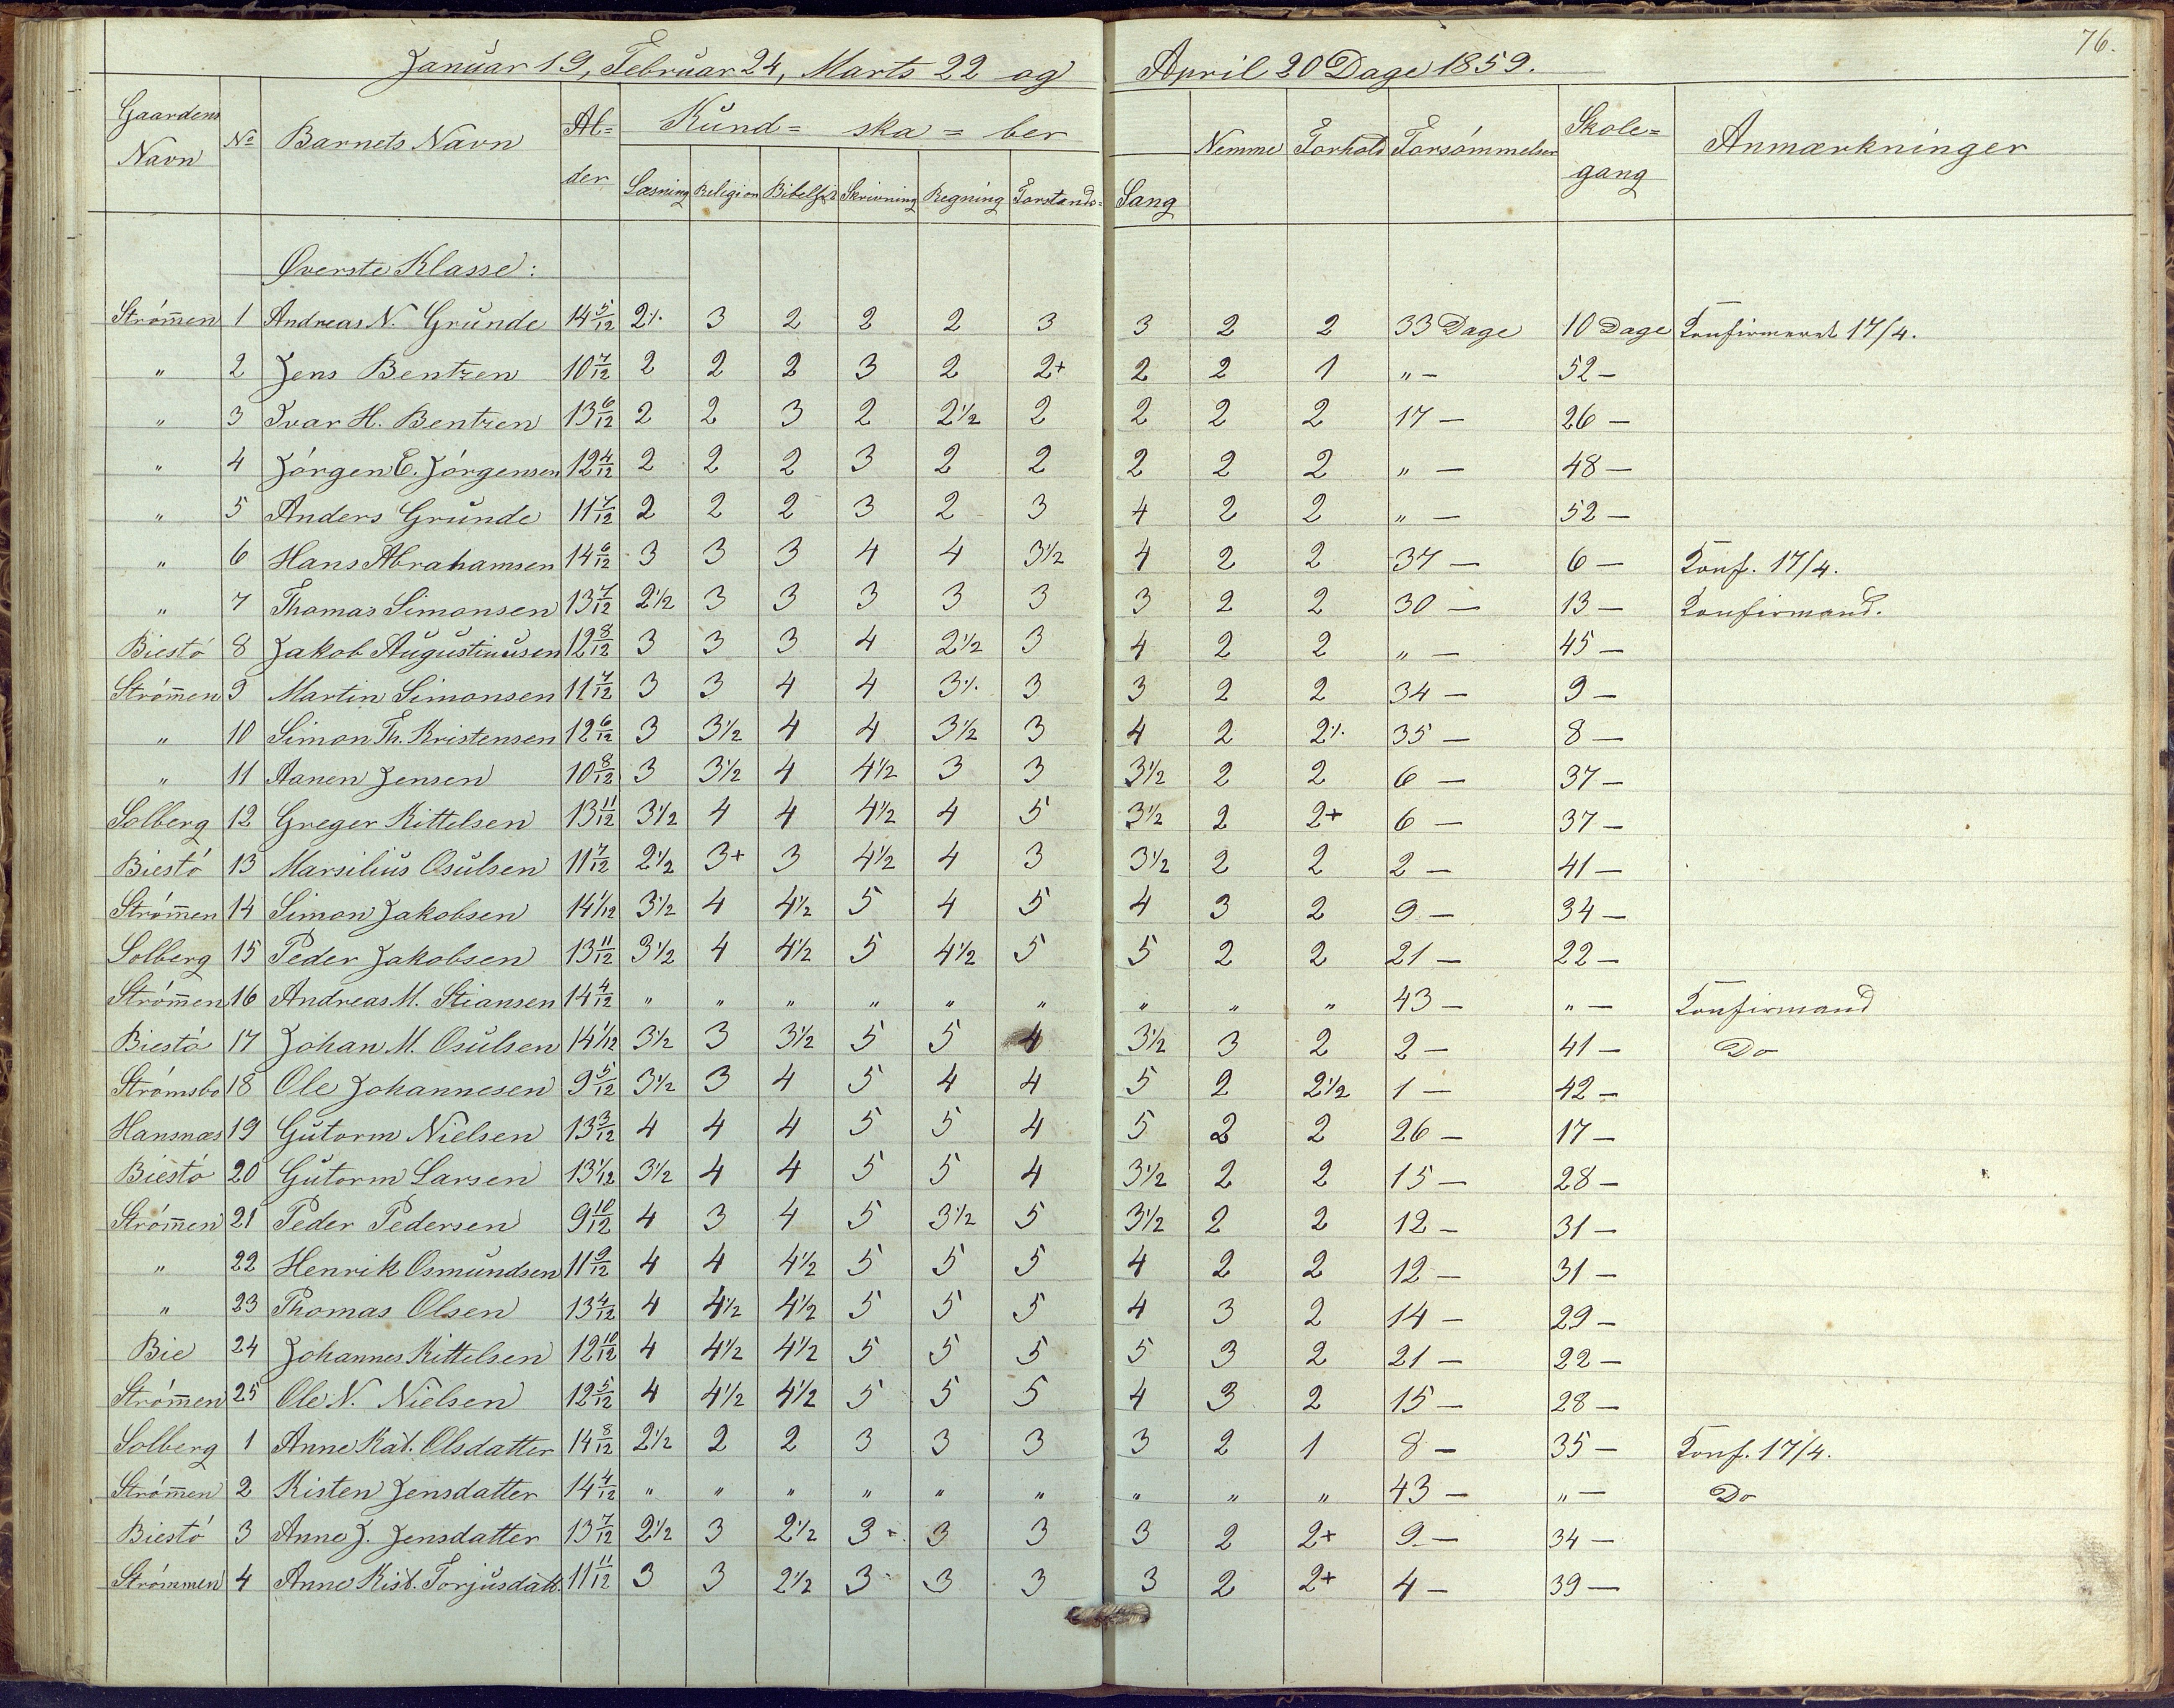 76.
Januar 19, Februar 24, Marts 22 og April 20 Dage 1859.
Gaardens Navn | No | Barnets Navn | Al=der | Kund=ska=ber | Nemme | Forhold | Forsømmelser | Skole=gang | Anmærkninger
Læsning | Religion | Bibelh | Skrivning | Regning | Forstands= | Sang
Øverste Klasse:
Strømen 1 Andreas N. Grunde 14 5/12 2⁒ 3 2 2 2 3 3 2 2 33 Dage 10 Dage Konfirmeret 17/4.
" 2 Jens Bentzen 10 7/12 2 2 2 3 2 2+ 2 2 1 " — 52 —
" 3 Ivar H. Bentzen 13 6/12 2 2 3 2 2½ 2 2 2 2 17 — 26 —
" 4 Jørgen E. Jørgensen 12 4/12 2 2 2 3 2 2 2 2 2 " — 48 —
" 5 Anders Grunde 11 7/12 2 2 2 3 2 3 4 2 2 " — 52 —
" 6 Hans Abrahamsen 14 6/12 3 3 3 4 4 3½ 4 2 2 37 — 6 — Konf. 17/4.
" 7 Thomas Simonsen 13 7/12 2½ 3 3 3 3 3 3 2 2 30 — 13 — Konfirmand.
Biestø 8 Jakob Augustinusen 12 8/12 3 3 3 4 2½ 3 4 2 2 " — 45 —
Strømen 9 Martin Simonsen 11 7/12 3 3 4 4 3⁒ 3 3 2 2 34 — 9 —
" 10 Simon Th. Kristensen 12 6/12 3 3½ 4 4 3½ 3 4 2 2⁒ 35 — 8 —
" 11 Aanen Jensen 10 8/12 3 3½ 4 4½ 3 3 3½ 2 2 6 — 37 —
Solberg 12 Greger Kittelsen 13 11/12 3½ 4 4 4½ 4 5 3½ 2 2+ 6 — 37 —
Biestø 13 Marsilius Osulsen 11 7/12 2½ 3+ 3 4½ 4 3 3½ 2 2 2 — 41 —
Strømen 14 Simon Jakobsen 14 1/12 3½ 4 4½ 5 4 5 4 3 2 9 — 34 —
Solberg 15 Peder Jakobsen 13 11/12 3½ 4 4½ 5 4½ 5 5 2 2 21 — 22 —
Strømen 16 Andreas M. Stiansen 14 4/12 " " " " " " " " " 43 — " — Konfirmand
Biestø 17 Johan M. Osulsen 14 1/12 3½ 3 3½ 5 5 4 3½ 3 2 2 — 41 — Do
Strømsbo 18 Ole Johannesen 9 5/12 3½ 3 4 5 4 4 5 2 2½ 1 — 42 —
Hansnæs 19 Gutorm Nielsen 13 3/12 4 4 4 5 5 4 5 2 2 26 — 17 —
Biestø 20 Gutorm Larsen 13 1/12 3½ 4 4 5 5 4 3½ 2 2 15 — 28 —
Strømen 21 Peder Pedersen 9 10/12 4 3 4 5 3½ 5 3½ 2 2 12 — 31 —
" 22 Henrik Osmundsen 11 9/12 4 4 4½ 5 5 5 4 2 2 12 — 31 —
" 23 Thomas Olsen 13 4/12 4 4½ 4½ 5 5 5 4 3 2 14 — 29 —
Bie 24 Johannes Kittelsen 12 10/12 4 4½ 4½ 5 5 5 5 3 2 21 — 22 —
Strømen 25 Ole N. Nielsen 12 5/12 4 4½ 4½ 5 5 5 4 3 2 15 — 28 —
Solberg 1 Anne Kat. Olsdatter 14 8/12 2½ 2 2 3 3 3 3 2 1 8 — 35 — Konf. 17/4.
Strømen 2 Kisten Jensdatter 14 4/12 " " " " " " " " " 43 — " — Do
Biestø 3 Anne J. Jensdatter 13 7/12 2½ 3 2½ 3 3 3 3 2 2+ 9 — 34 —
Strømmen 4 Anne Kist. Torjusdatt. 11 11/12 3 3 2½ 3 3 3 3 2 2+ 4 — 39 —